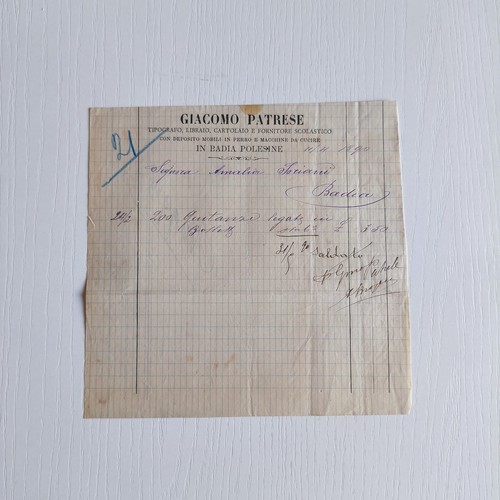 21
GIACOMO PATRESE
TIPOGRAFO, LIBRAIO, CARTOLAIO E FORNITORE SCOLASTICO
CON DEPOSITO MOBILI IN FERRO E MACCHINE DA CUCIRE
IN BADIA POLESINE
1890
Signora Amalia
Badia
200 Quitanze legate in
£ 3.50
Saldato